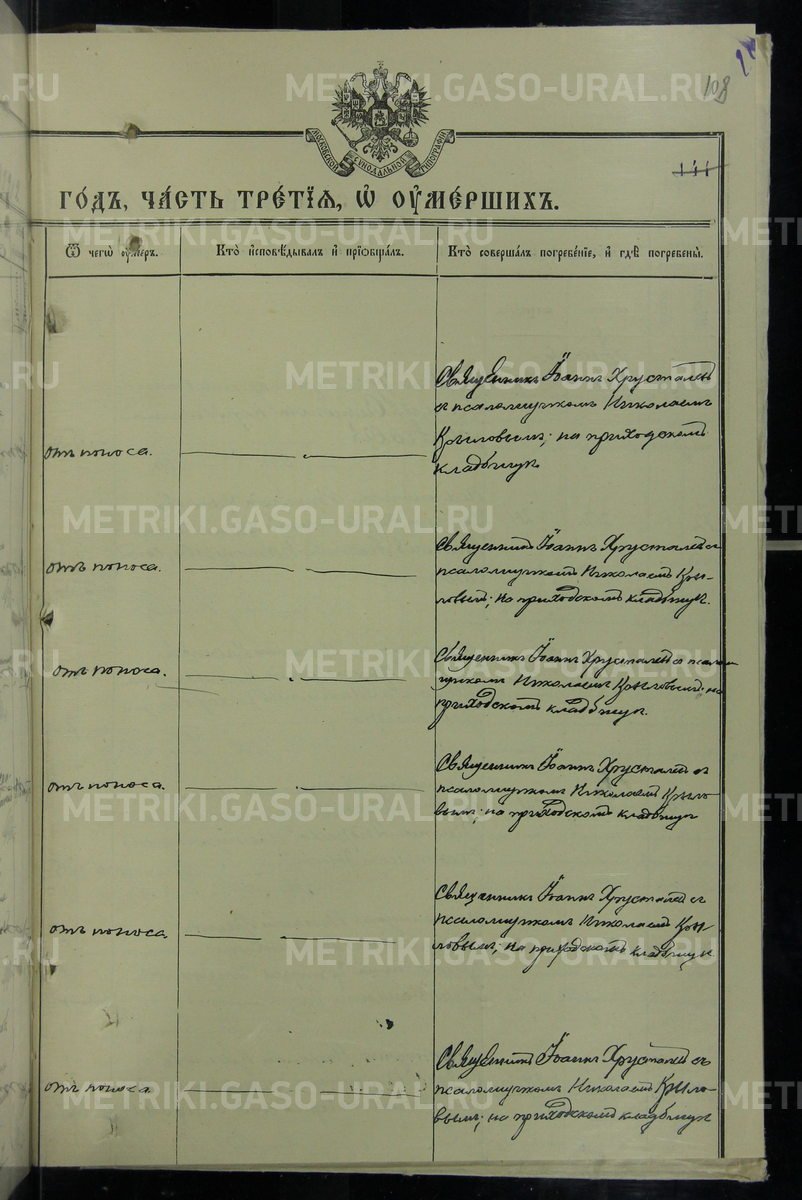 108
МОСКОВСКОЙ СѴНОДАЛЬНОЙ ТИПОГРАФІИ
141
ГО́ДЪ, ЧА́СТЬ ТРЕ́ТІЯ, Ѡ҆ ОУ҆МЕ́РШИХЪ.
Ѿ чегѡ̀ ᲂу҆́меръ.
Кто̀ и҆сповѣ́дывалъ и҆ прїѡбща́лъ.
Кто̀ соверша́лъ погребе́нїе, и҆ гдѣ̀ погребены̀.
отъ поноса.
Священникъ Іоаннъ Хрусталевъ
съ псаломщикомъ Николаемъ
Крыловымъ; на приходскомъ
кладбищѣ.
отъ поноса.
Священникъ Іоаннъ Хрусталевъ съ
псаломщикомъ Николаемъ Кры-
ловымъ; на приходскомъ кладбищѣ.
отъ поноса.
Священникъ Іоаннъ Хрусталевъ со псалом
щикомъ Николаемъ Крыловымъ; на
приходскомъ кладбищѣ.
отъ поноса.
Священникъ Іоаннъ Хрусталевъ съ
псаломщикомъ Николаемъ Крыло
вымъ; на приходскомъ кладбищѣ
отъ поноса.
Священникъ Іоаннъ Хрусталевъ съ
псаломщикомъ Николаемъ Кры-
ловымъ; на приходскомъ кладбищѣ
отъ поноса.
Священникъ Іоаннъ Хрусталевъ съ
псаломщикомъ Николаемъ Крыло-
вымъ; на приходскомъ кладбищѣ
METRIKI.GASO-URAL.RU